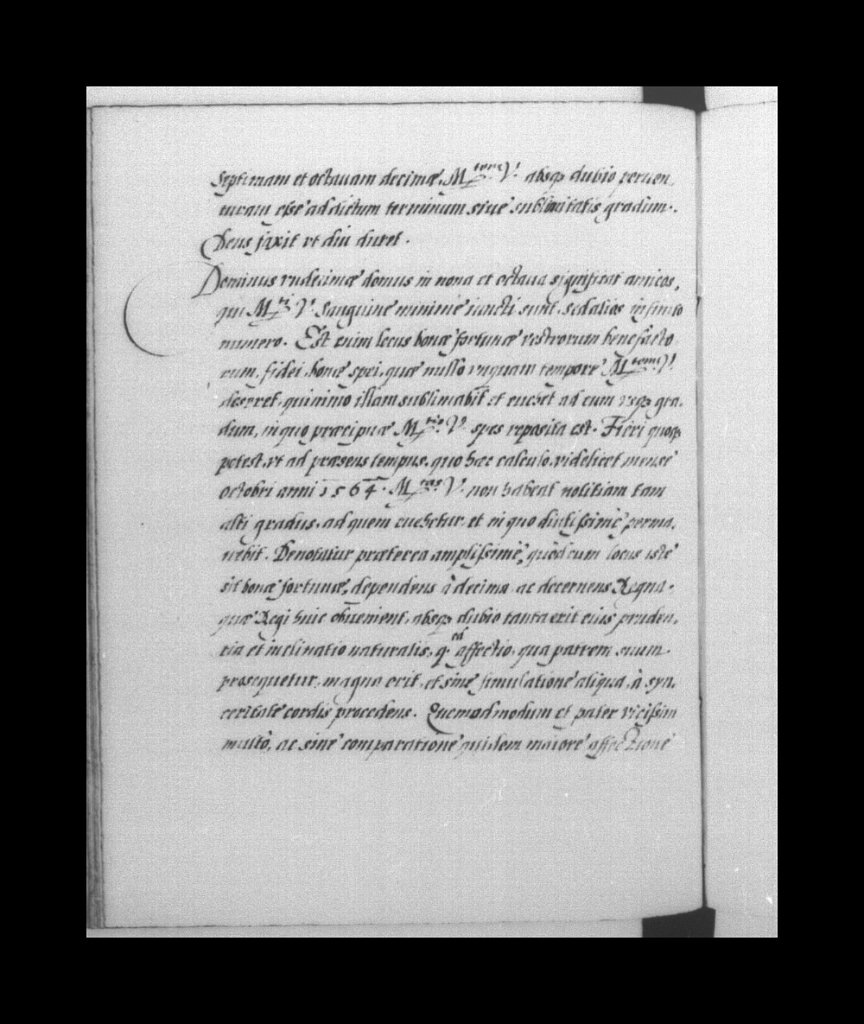 septimam et octauam decimæ, M.tem V. absq dubio peruen,
turam esse ad dictum terminum siue sublimitatis gradum.
Deus faxit vt diu duret.
Dominus vndecimæ domus in nona et octaua significat amicos,
qui M.ti V. sanguine minime iuncti sunt, sed alios infinito
numero. Est enim locus bonæ fortunæ vestrorum benefacto
rum, fidei, bonæ spei, quæ nullo vnquam tempore M.tem V.
deseret, quinimo illam sublimabit et euehet ad eum vsq gra,
dum, in quo præcipuæ M.tis V. spes reposita est. Fieri quoq
potest, vt ad præsens tempus, quo hæc calculo, videlicet mense
octobri anni 1564. M.tas V. non habeat notitiam tam
alti gradus, ad quem euehetur et in quo diutissimè perma,
nebit. Denotatur præterea amplissimè, quòd cum locus iste
sit bonæ fortunæ, dependens à decima ac decernens Regna,
quæ Regi huic obuenient, absq dubio tanta erit eius pruden,
tia et inclinatio naturalis, qd affectio, qua patrem suum
prosequetur, magna erit, et sine simulatione aliqua, à syn,
ceritate cordis procedens. Quemadmodum et pater vicissim
multò, ac sine comparatione quidem maiore affectione